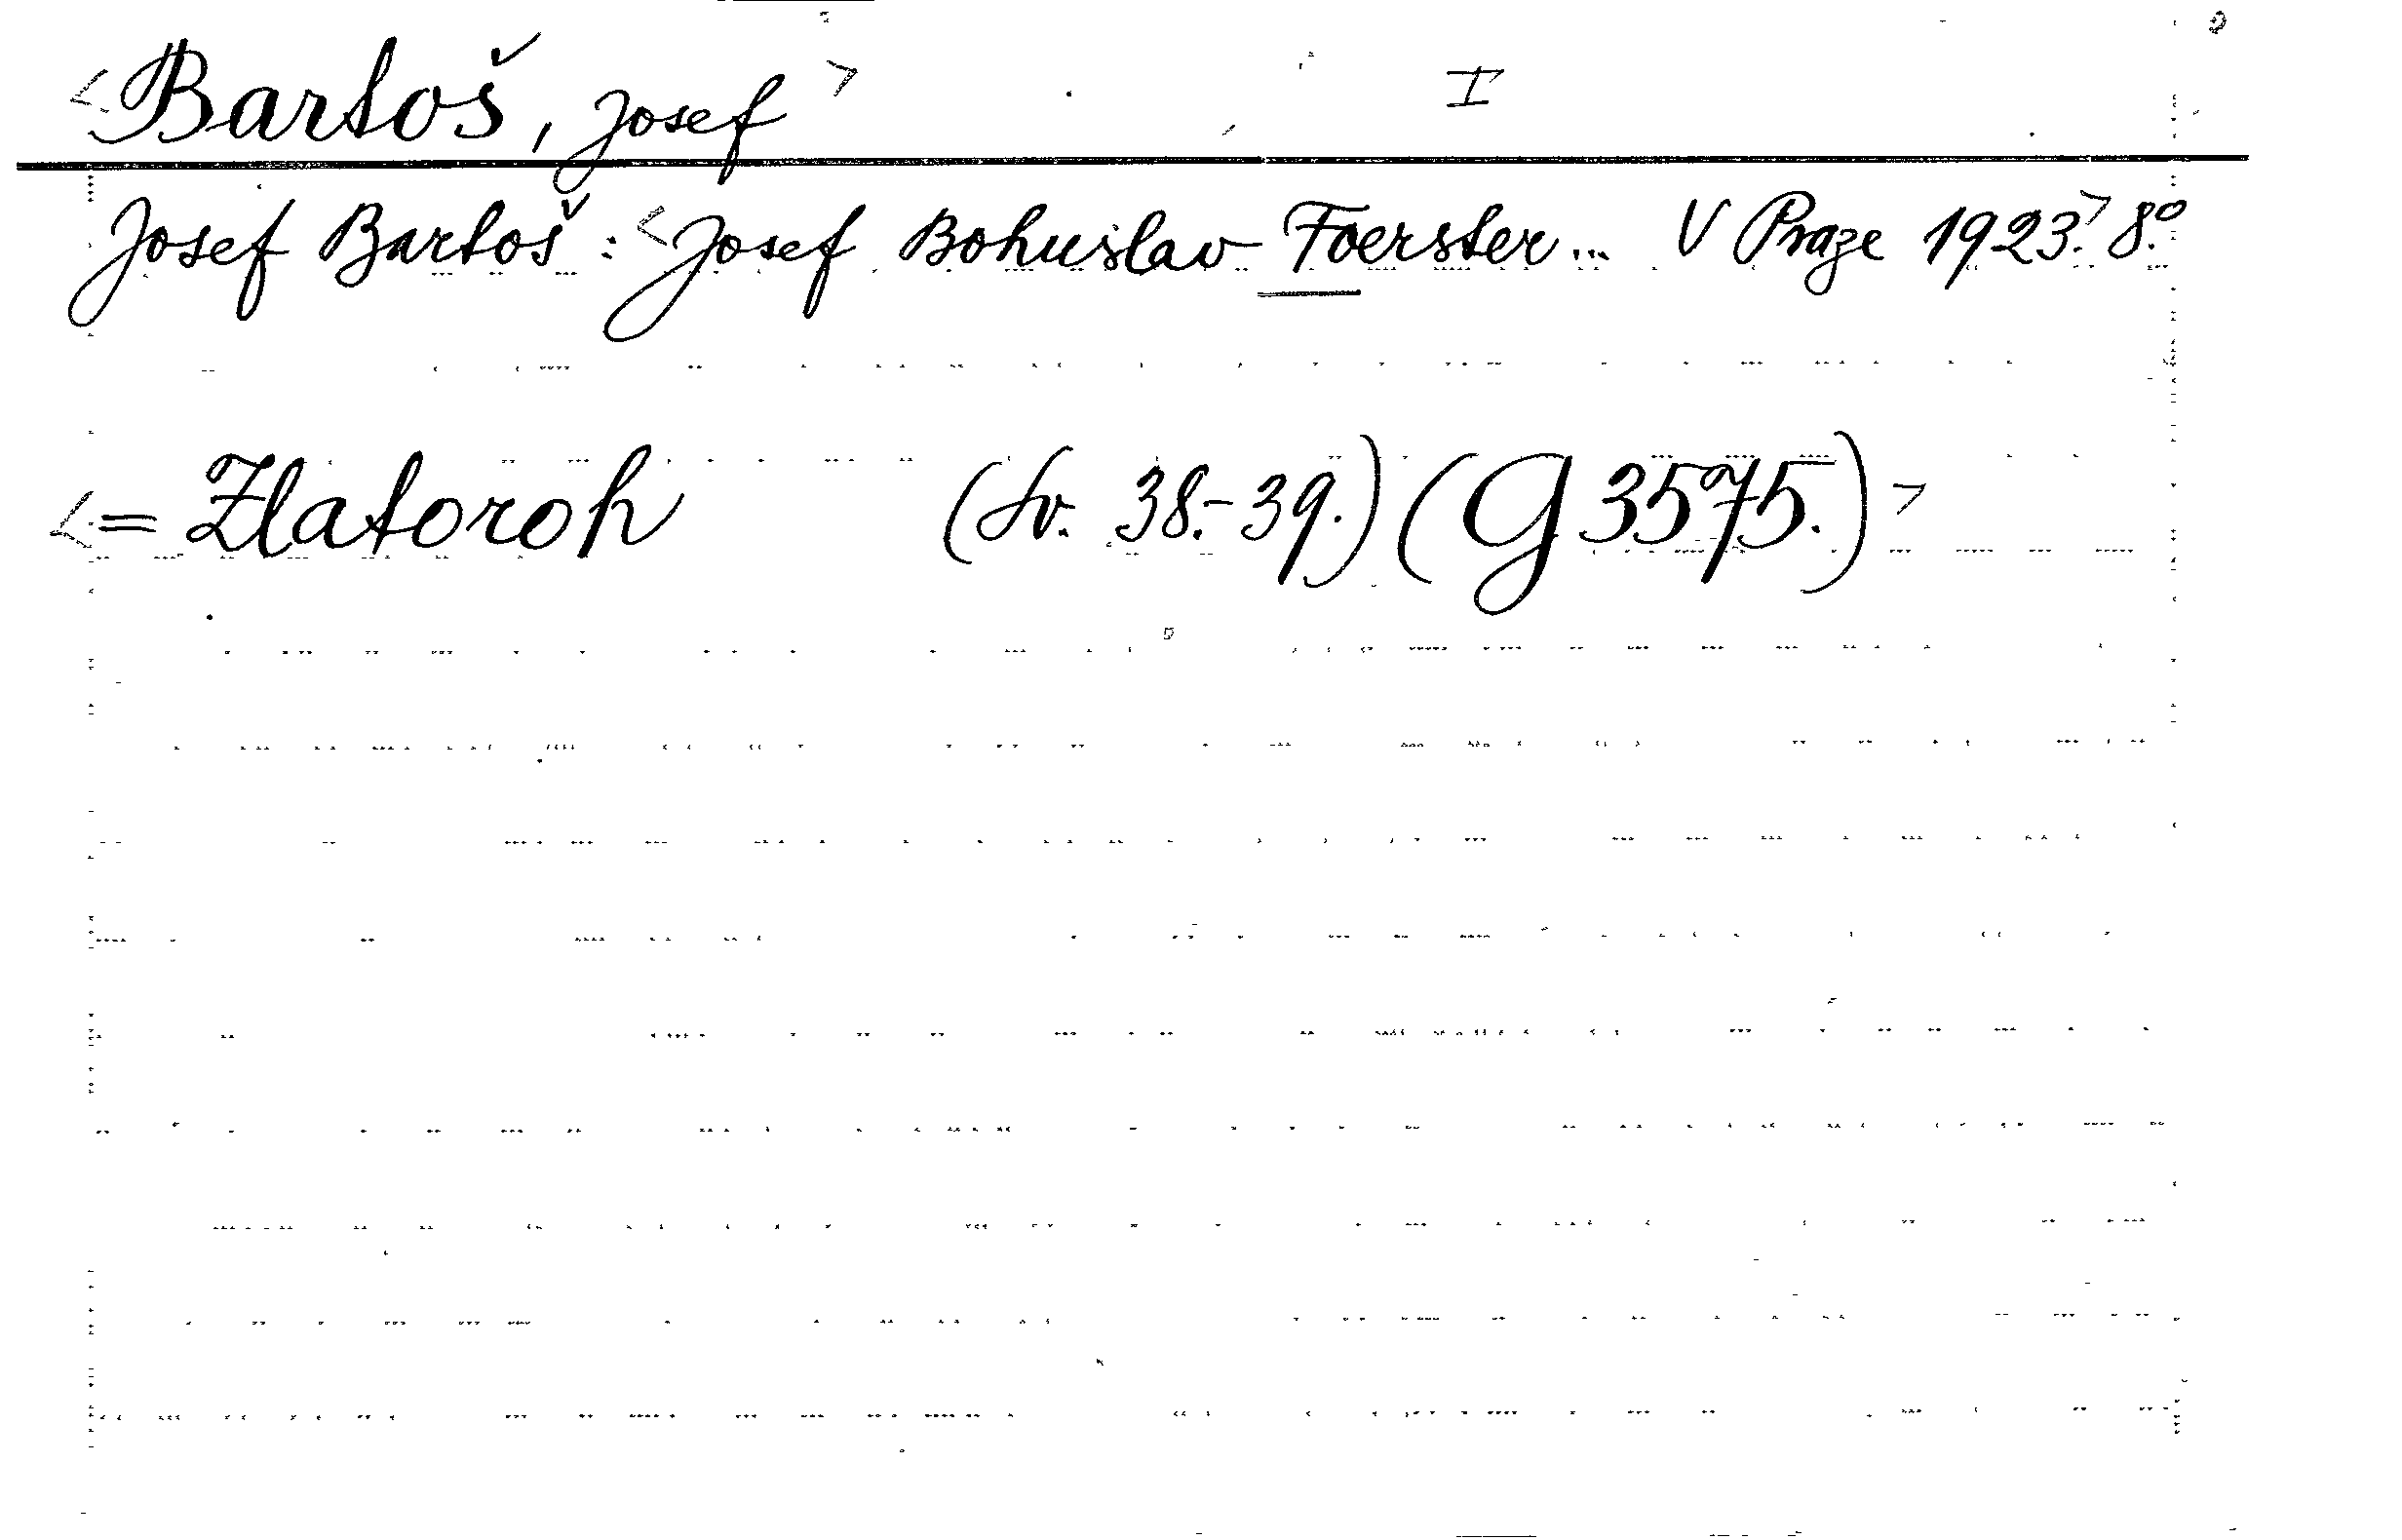 <Bartoš, Josef> I
Josef Bartoš: <Josef Bohuslav Foerster... V Praze 1923.> 8.º
<= Zlatoroh (Sv. 38.-39.) (G 3575.)>